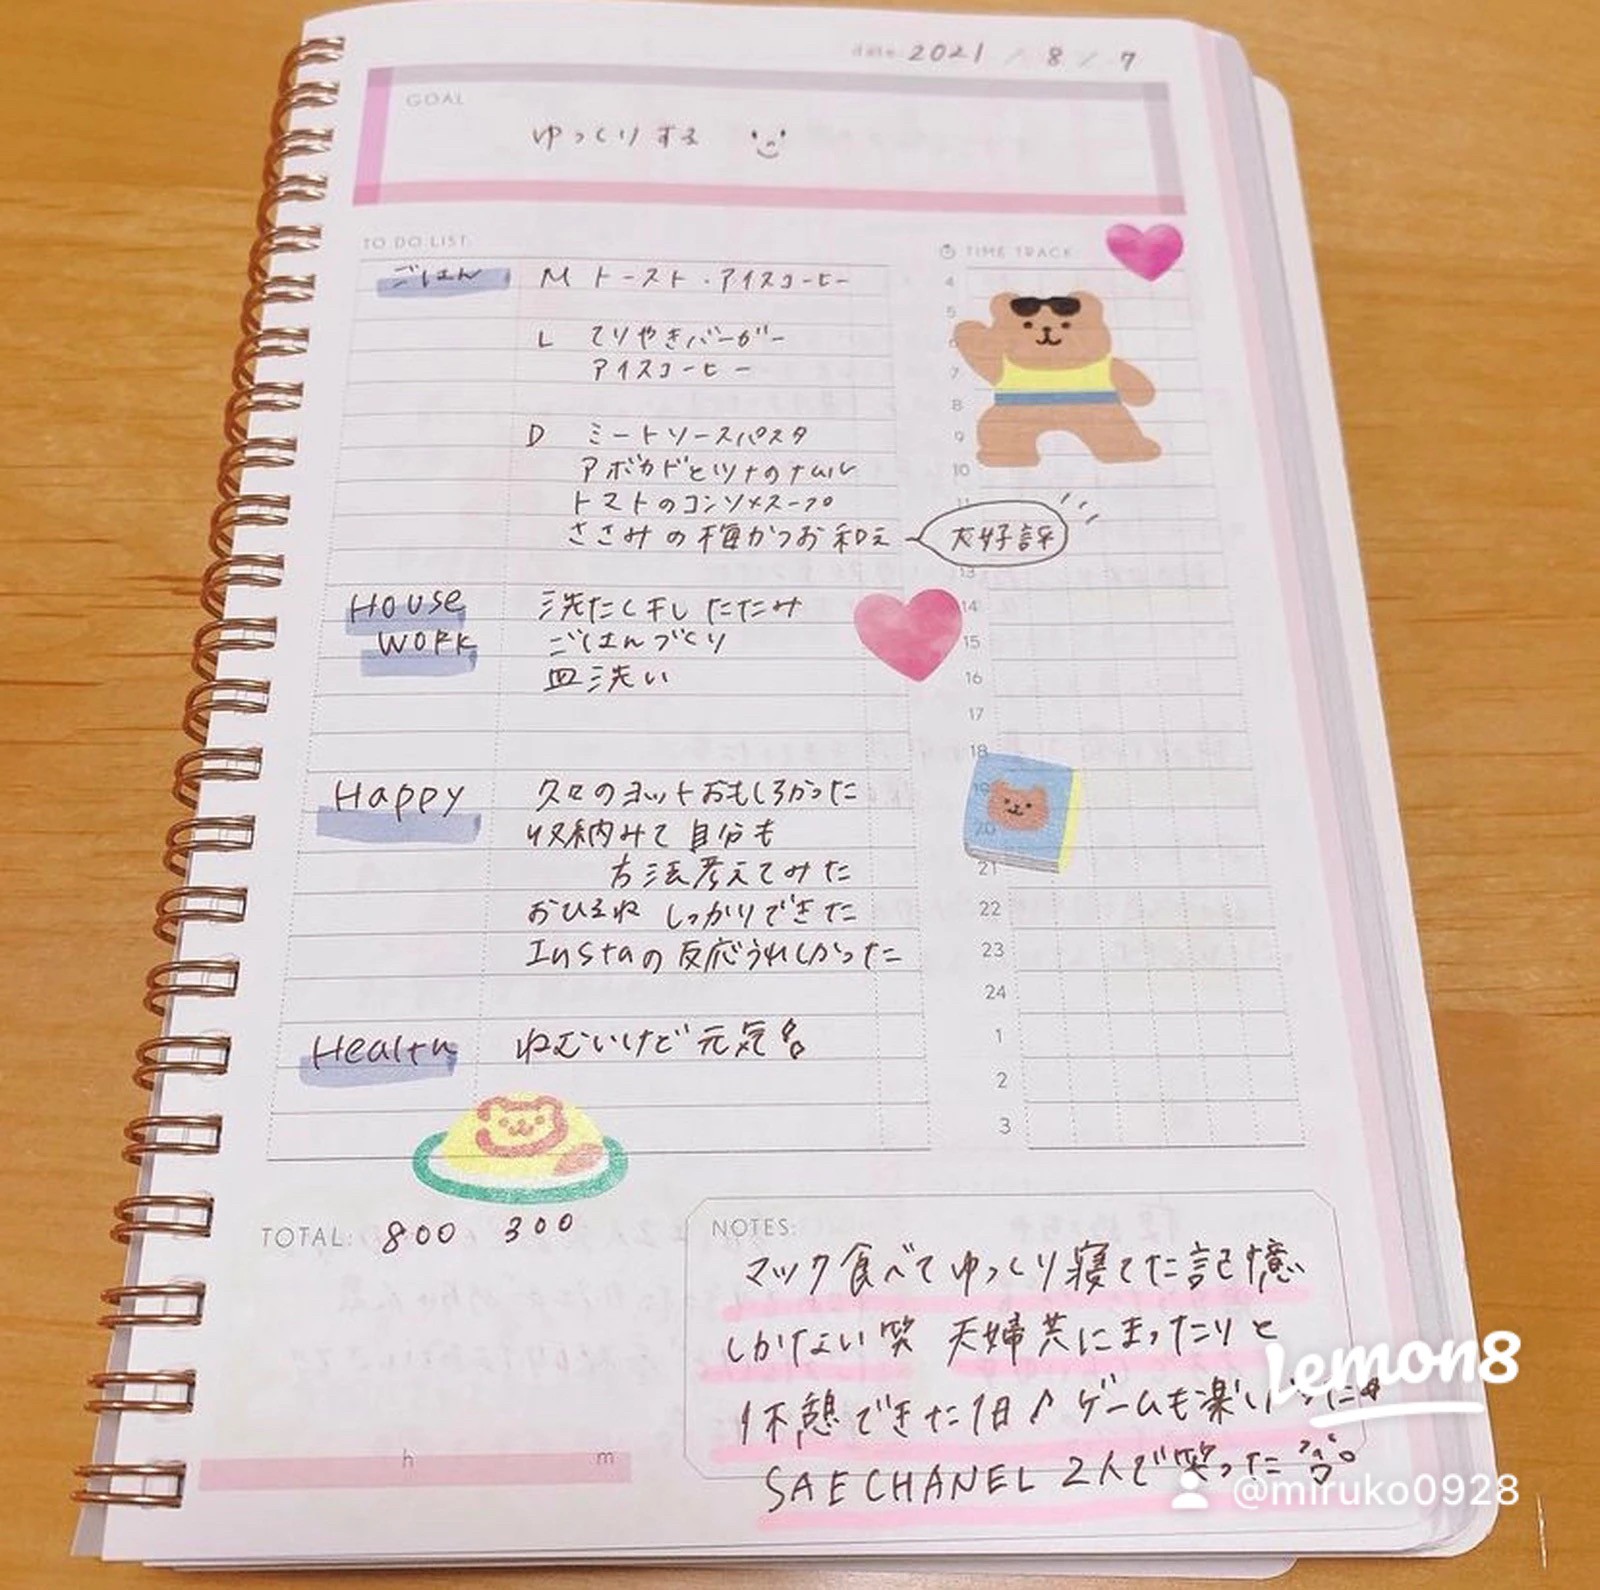 date: 2021 / 8 / 7
GOAL
ゆっくりする
TO DO LIST:
TIME TRACK
ごはん M トースト・アイスコーヒー
L てりやきバーガー
アイスコーヒー
D ミートソースパスタ
アボカドとツナのナムル
トマトのコンソメスープ
ささみの梅かつお和え 大好評
HOUSE 洗たく干し たたみ
WORK ごはんづくり
皿洗い
Happy 久々のヨットおもしろかった
収納みて自分も
方法考えてみた
おひるね しっかりできた
Instaの反応うれしかった
Health ねむいけど元気
4
5
6
7
8
9
10
11
13
14
15
16
17
18
19
20
21
22
23
24
1
2
3
TOTAL: 800 300
h m
NOTES:
マック食べてゆっくり寝てた記憶
しかない笑 夫婦共にまったりと
休憩できた1日♪ ゲームも楽しかった
SAECHANEL 2人で笑った
Lemon8
@miruko0928